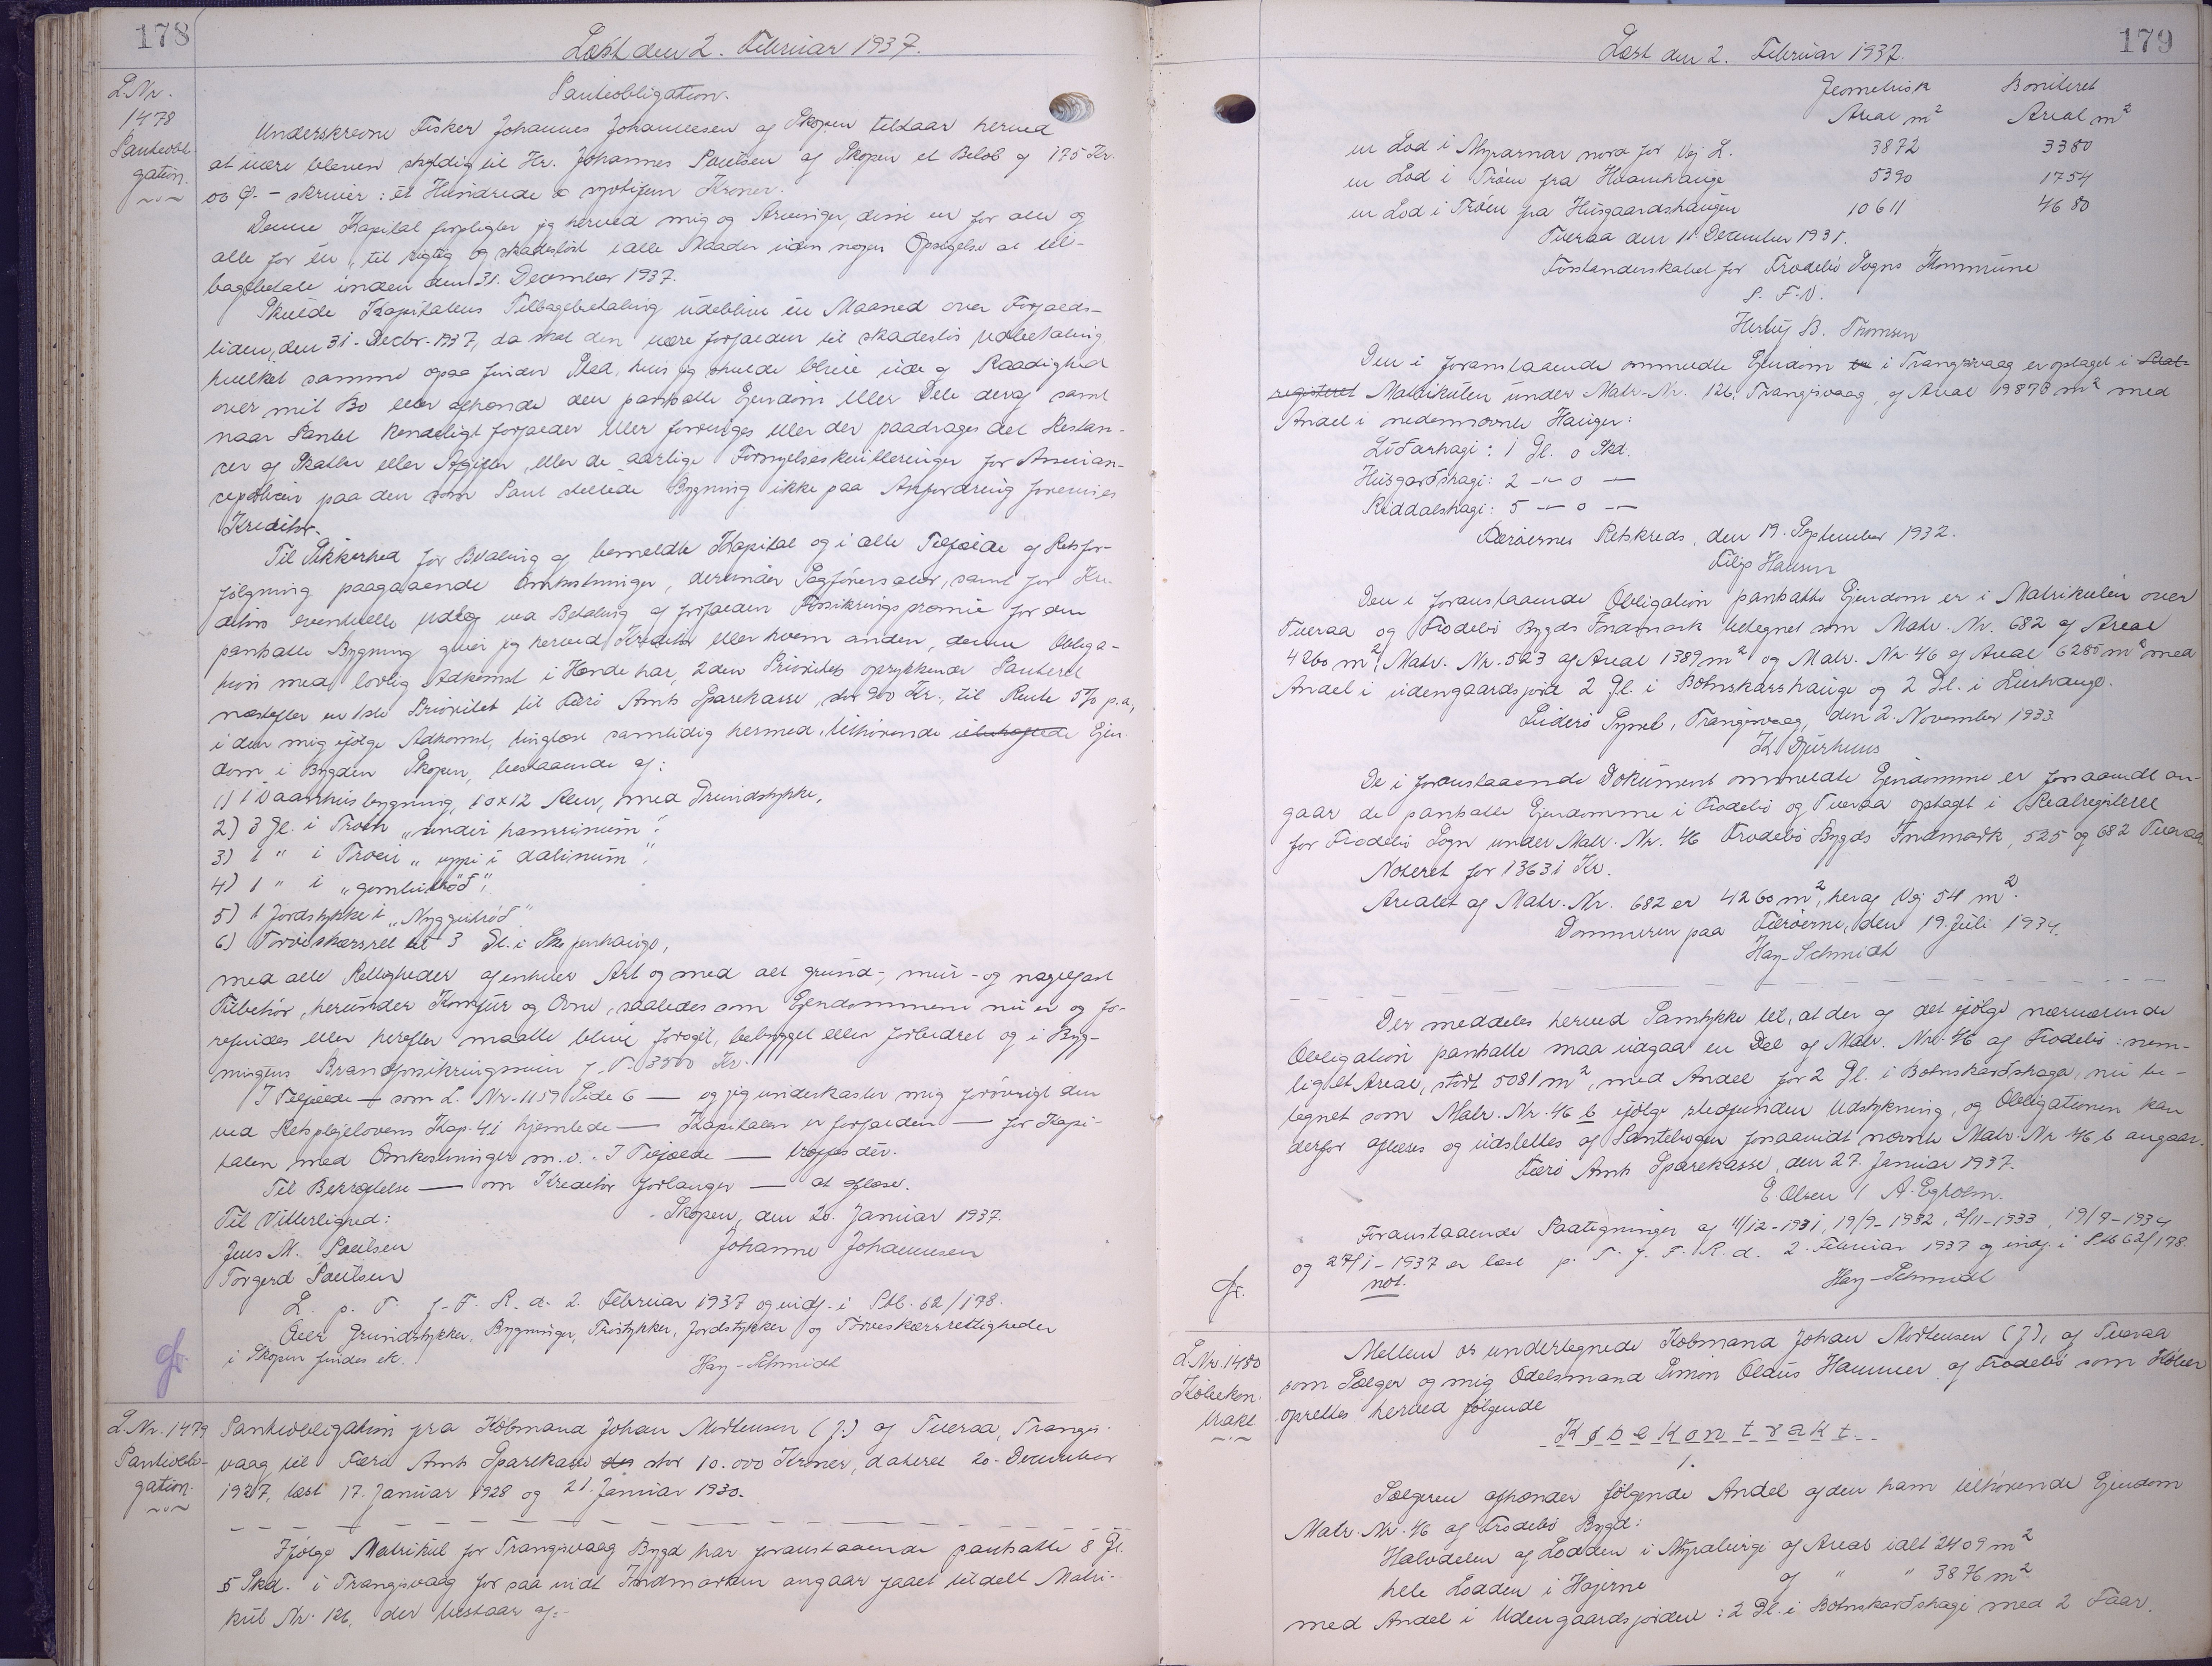 178
Læst den 2. Februar 1937.
L.Nr.
1478
Panteobli-
gation.
Panteobligation.
Underskrevne Fisker Johannes Johannesen af Skopen tilstaar herved
at være bleven skyldig til Hr. Johannes Poulsen af Skopen et Beløb af 175 Kr.
00 Ø. - skriver: et Hundrede og syvtifem Kroner.
Denne Kapital forpligter jeg herved mig og Arvinger, disse en for alle og
alle for én, til rigtig og skadesløst i alle Maader uden nogen Opsigelse at til-
bagebetale inden den 31. December 1937.
Skulde Kapitalens Tilbagebetaling udeblive en Maaned over Forfalds-
tiden, den 31. Decbr. 1937, da skal den være forfalden til skadesløs Udbetaling,
hvilket samme ogsaa finder Sted, hvis jeg skulde blive ude af Raadighed
over mit Bo eller afhænde den pantsatte Ejendom eller Dele deraf samt
naar Pantet kendeligt forfalder eller forringes eller der paadrages det Restan-
cer af Skatter eller Afgifter, eller de aarlige Fornyelseskvitteringer for Assuran-
cepolicen paa den som Pant stillede Bygning ikke paa Anfordring forevises
Kreditor.
Til Sikkerhed for Betaling af bemeldte Kapital og i alle Tilfælde af Retsfor-
følgning paagaaende Omkostninger, derunder Sagførersalær, samt for Kre-
ditors eventuelle Udlæg ved Betaling af forfalden Forsikringspræmie for den
pantsatte Bygning giver jeg herved Kreditor eller hvem anden, denne Obliga-
tion med lovlig Adkomst i Hænde har, 2den Prioritets oprykkende Panteret
næstefter en 1ste Prioritet til Færø Amts Sparekasse, stor 900 Kr., til Rente 5% p.a,
i den mig ifølge Adkomst, tinglæst samtidig hermed, tilhørende Ejen-
dom i Bygden Skopen, bestaaende af:
1) 1 Vaaanhusbygning, 10x12 Alen, med Grundstykke,
2) 3 Gl. i Trøen "undir hamrinum".
3) 1 " i Trøen "uppi i dalinum".
4) 1 " i "gomlutrøð",
5) 1 Jordstykke i "Nyggjutrøð"
6) Tørveskærsret til 3 Gl. i Skopenhauge,
med alle Rettigheder af enhver Art og med alt grund-, mur- og nagelfast
Tilbehør, herunder Komfur og Ovne, saaledes som Ejendommene nu er og fo-
refindes eller herefter maatte blive forøget, bebygget eller forbedret og i Byg-
ningens Brandforsikringssum f. T. 3500 Kr.
I Tilfælde — som L. Nr. 1159 Side 6 — og jeg underkaster mig forøvrigt den
ved Retsplejelovens Kap. 41 hjemlede — Kapitalen er forfalden — for Kapi-
talen med Omkostninger m.v. I Tilfælde — træffes dér.
Til Bekræftelse — om Kreditor forlanger — at aflæse.
Til Vitterlighed:
Skopen, den 20. Januar 1937.
Jens M. Poulsen
Johannes Johannesen
Torgerd Poulsen
L. p. T. f. F. R. d. 2. Februar 1937 og indf. i Ptb. 62/178.
Over Grundstykker, Bygninger, Trøstykker, Jordstykker og Tørveskærsrettigheder
i Skopen findes ek.
Hay-Schmidt
L.Nr. 1479
Panteobli-
gation.
Panteobligation fra Købmand Johan Mortensen (J.) af Tveraa, Trangis-
vaag til Færø Amts Sparekasse stor 10.000 Kroner, dateret 20. December
1927, læst 17. Januar 1928 og 21. Januar 1930.
Ifølge Matrikul for Trangisvaag Bygd har foranstaaende pantsatte 8 Gl.
5 Skd. i Trangisvaag for saa vidt Indmarken angaar faaet tildelt Matri-
kul Nr. 126, der bestaar af:
179
Læst den 2. Februar 1937.
Geometrisk Boniteret
Areal m² Areal m²
en Lod i Myrarnar nord for Vej L. 3872 3380
en Lod i Trøen fra Hvamhauge 5390 1754
en Lod i Trøen fra Husgaardshaugen 10611 4680
Tveraa den 11 December 1931.
Forstanderskabet for Frodebø Sogns Kommune
P. F. V.
Herluf B. Thomsen
Den i foranstaaende ommeldte Ejendom i Trangisvaag er optaget i Real-
registeret Matrikulen under Matr. Nr. 126, Trangisvaag, af Areal 19873 m² med
Andel i nedennævnte Hauger:
Liðarhagi: 1 Gl. 0 Skd.
Husgarðshagi: 2 -"- 0 —
Riddalshagi: 5 -"- 0 —
Færøernes Retskreds, den 19. September 1932.
Filip Hansen
Den i foranstaaende Obligation pantsatte Ejendom er i Matrikulen over
Tveraa og Frodebø Bygds Indmark betegnet som Matr. Nr. 682 af Areal
4260 m², Matr. Nr. 523 af Areal 1389 m² og Matr. Nr. 46 af Areal 6285 m² med
Andel i udengaardsjord 2 Gl. i Botnskarshauge og 2 Gl. i Lierhauge.
Suderø Syssel, Trangisvaag, den 2. November 1933.
Kl. Djurhuus
De i foranstaaende Dokument ommeldte Ejendomme er forsaavidt an-
gaar de pantsatte Ejendomme i Frodebø og Tveraa optaget i Realregisteret
for Frodebø Sogn under Matr. Nr. 46 Frodebø Bygds Indmark, 525 og 682 Tveraa
Noteret for 13631 Kr.
Arealet af Matr. Nr. 682 er 4260 m², heraf Vej 54 m².
Dommeren paa Færøerne, den 19 Juli 1934.
Hay-Schmidt
Der meddeles herved Samtykke til, at der af det ifølge nærværende
Obligation pantsatte maa udgaa en Del af Matr. Nr. 46 af Frodebø: nem-
lig et Areal, stort 5081 m², med Andel for 2 Gl. i Botnskarðshaga, nu be-
tegnet som Matr. Nr. 46 b ifølge stedfunden Udstykning, og Obligationen kan
derfor aflæses og udslettes af Pantebogen forsaavidt nævnte Matr. Nr 46 b angaar.
Færø Amts Sparekasse, den 27. Januar 1937.
E. Olsen / A. Egholm.
Foranstaaende Paategninger af 11/12-1931, 19/9-1932, 2/11-1933, 19/7-1934
og 27/1-1937 er læst p. T. f. F. R. d. 2. Februar 1937 og indf. i Ptb 62/178.
not.
Hay-Schmidt
L.Nr. 1480
Købekon-
trakt
Mellem os undertegnede Købmand Johan Mortensen (J), af Tveraa
som Sælger og mig Odelsmand Simon Olaus Hammer af Frodebø som Køber
oprettes herved følgende
Købekontrakt.
1.
Sælgeren afhænder følgende Andel af den ham tilhørende Ejendom
Matr. Nr. 46 af Frodebø Bygd:
Halvdelen af Lodden i Myralurgi af Areal ialt 2409 m²
hele Lodden i Hajerne af " " 3876 m²
med Andel i Udengaardsjorden: 2 Gl. i Botnskarðshagi med 2 Faar.